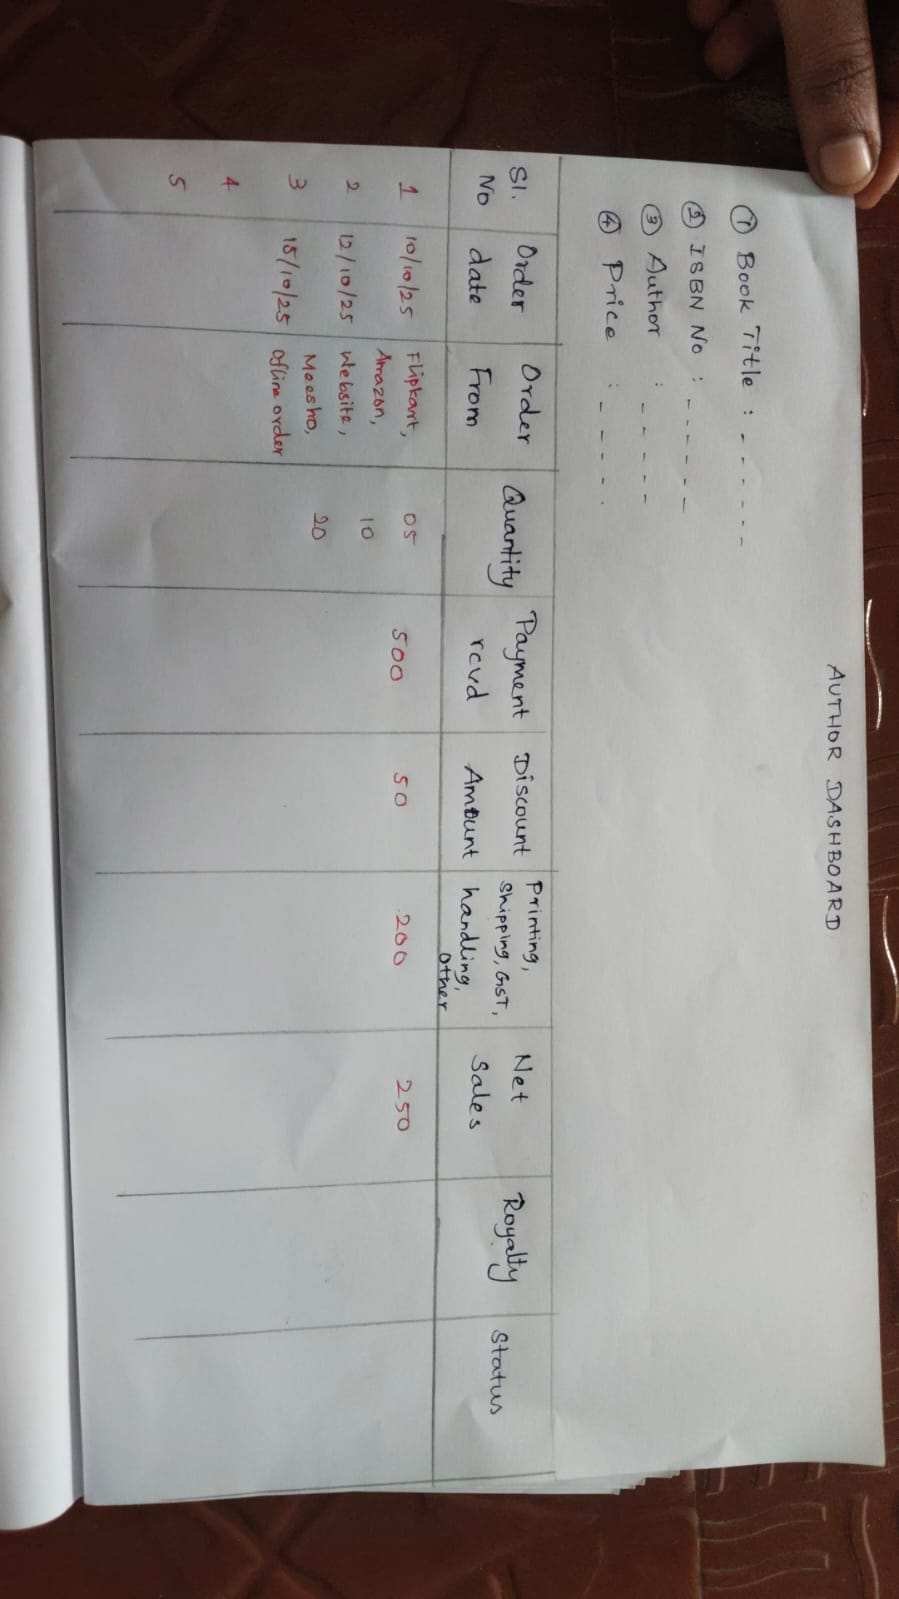 AUTHOR DASHBOARD
① Book Title : - - - - - -
② ISBN No : - - - - - -
③ Author : - - - - -
④ Price : - - - - .
Sl. No | Order date | Order From | Quantity | Payment rcvd | Discount Amount | Printing, Shipping, GST, handling, Other | Net Sales | Royalty | Status
1 | 10/10/25 | Flipkart, | 05 | 500 | 50 | 200 | 250
Amazon,
2 | 12/10/25 | Website, | 10
Meesho, | 20
3 | 15/10/25 | Offline order
4
5